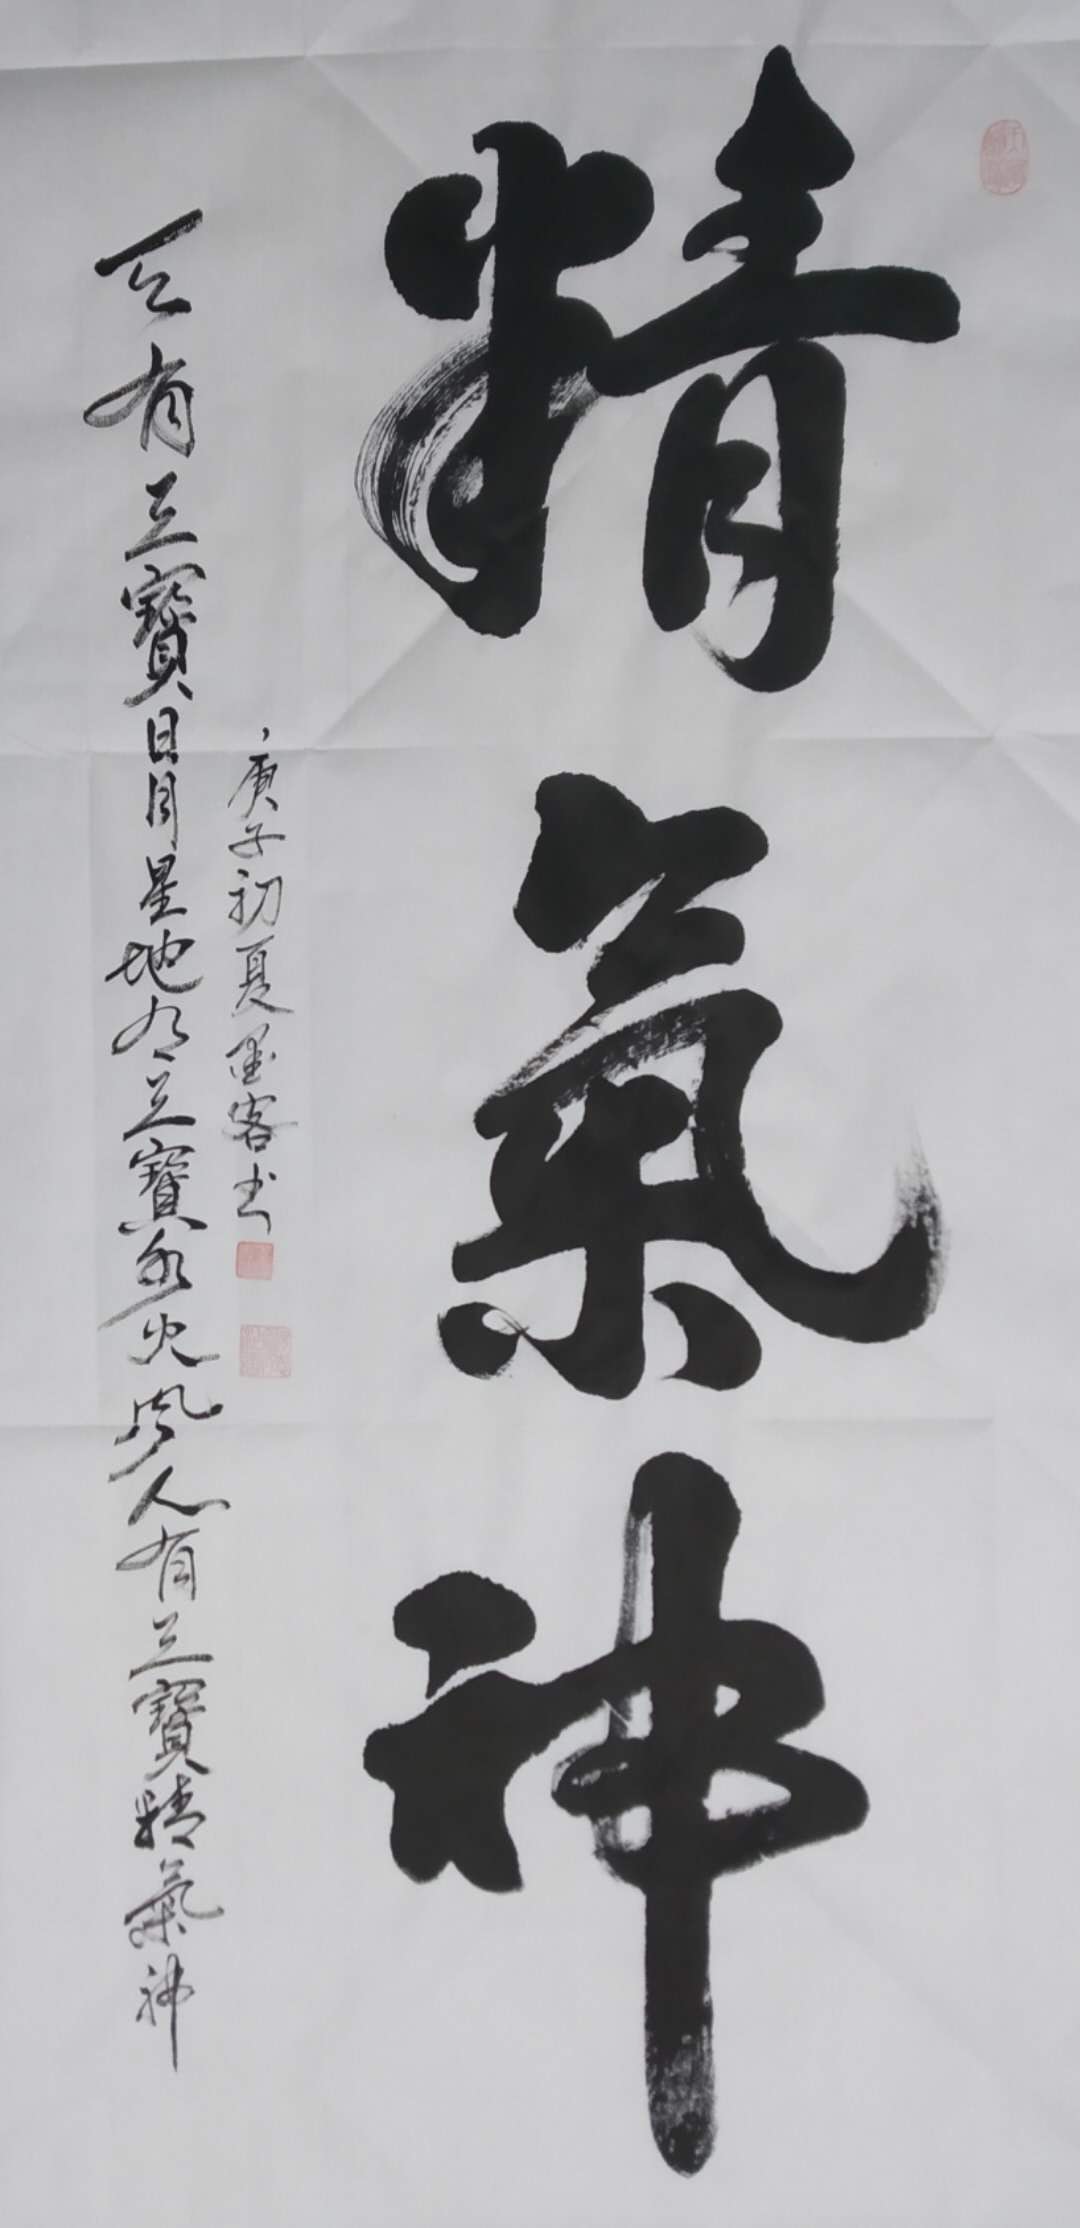 精氣神
天有三寶日月星地有三寶水火風人有三寶精氣神
庚子初夏墨客书